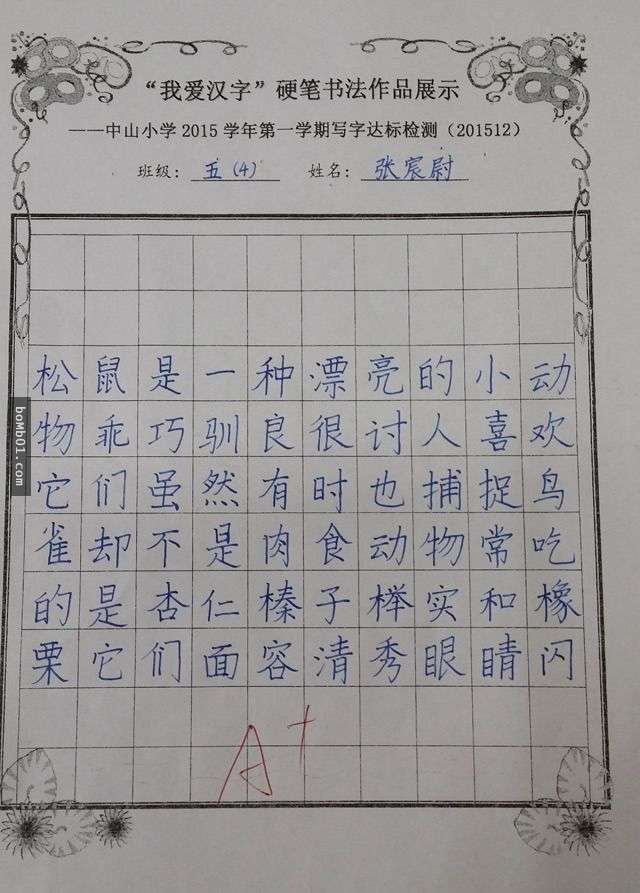 “我爱汉字”硬笔书法作品展示
——中山小学2015学年第一学期写字达标检测（201512）
班级：五（4） 姓名：张宸尉
松鼠是一种漂亮的小动
物乖巧驯良很讨人喜欢
它们虽然有时也捕捉鸟
雀却不是肉食动物常吃
的是杏仁榛子榉实和橡
栗它们面容清秀眼睛闪
A+
boMb01.com